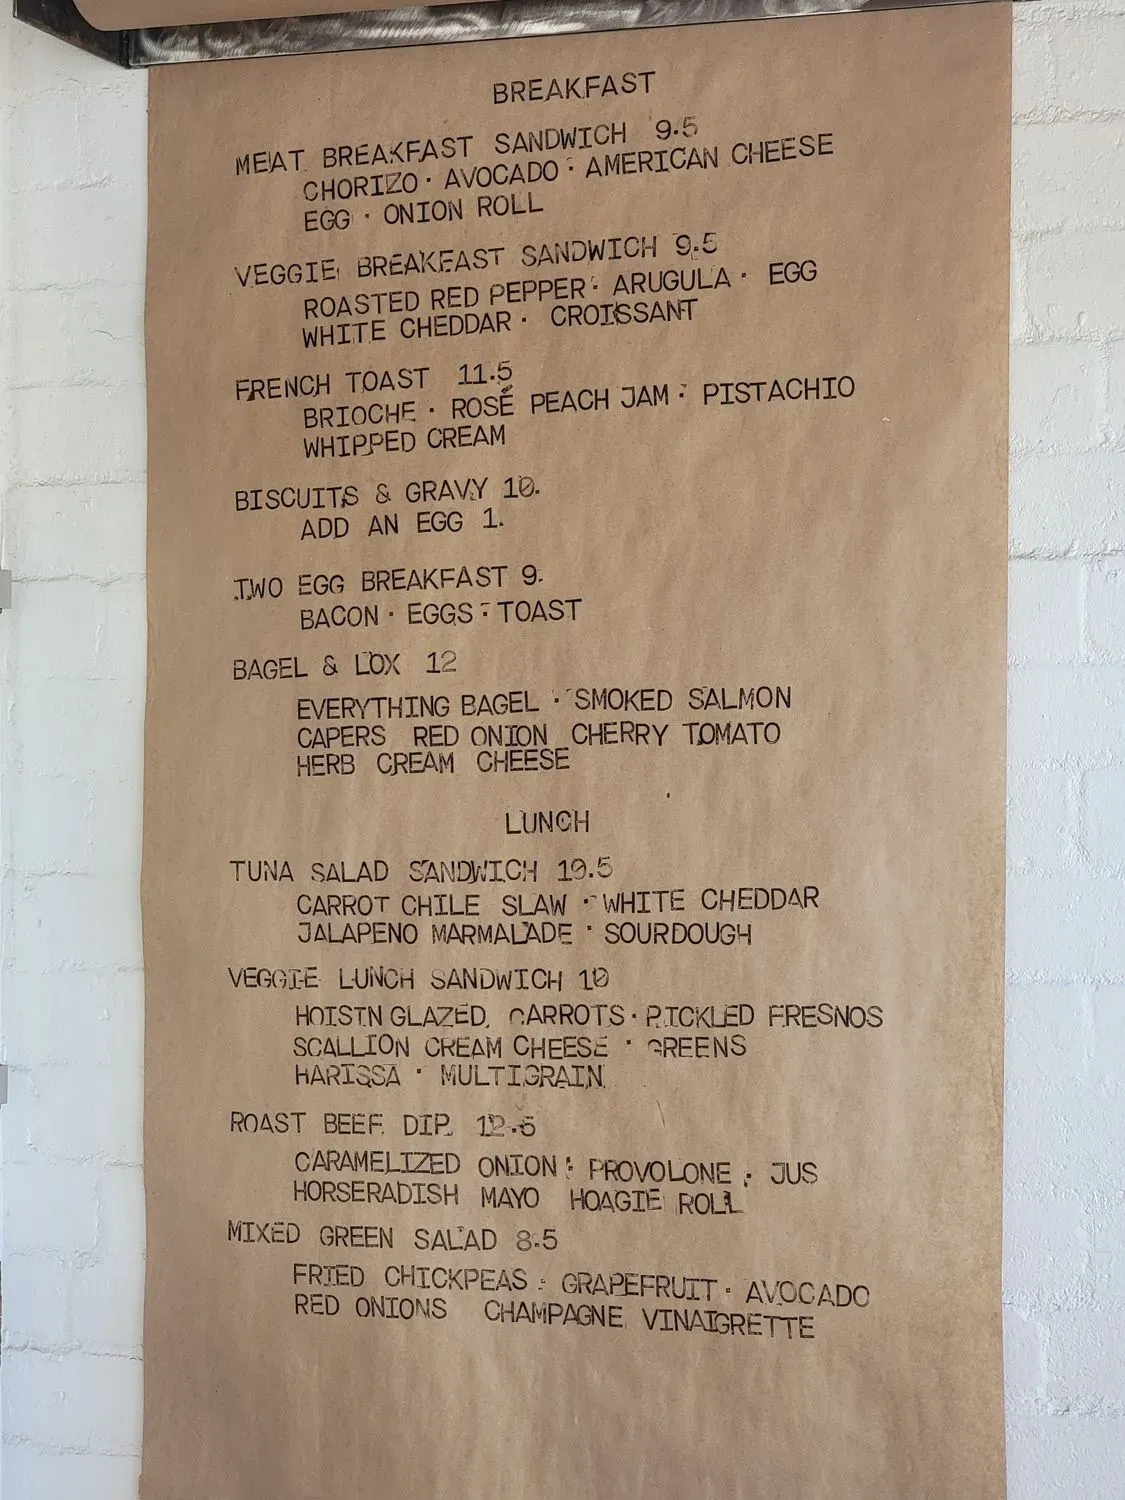 BREAKFAST
MEAT BREAKFAST SANDWICH 9.5
CHORIZO · AVOCADO · AMERICAN CHEESE
EGG · ONION ROLL
VEGGIE BREAKFAST SANDWICH 9.5
ROASTED RED PEPPER · ARUGULA · EGG
WHITE CHEDDAR · CROISSANT
FRENCH TOAST 11.5
BRIOCHE · ROSÉ PEACH JAM · PISTACHIO
WHIPPED CREAM
BISCUITS & GRAVY 10.
ADD AN EGG 1.
TWO EGG BREAKFAST 9.
BACON · EGGS · TOAST
BAGEL & LOX 12
EVERYTHING BAGEL · SMOKED SALMON
CAPERS RED ONION CHERRY TOMATO
HERB CREAM CHEESE
LUNCH
TUNA SALAD SANDWICH 10.5
CARROT CHILE SLAW · WHITE CHEDDAR
JALAPENO MARMALADE · SOURDOUGH
VEGGIE LUNCH SANDWICH 10
HOISIN GLAZED CARROTS · PICKLED FRESNOS
SCALLION CREAM CHEESE · GREENS
HARISSA · MULTIGRAIN
ROAST BEEF DIP 12.5
CARAMELIZED ONION · PROVOLONE · JUS
HORSERADISH MAYO HOAGIE ROLL
MIXED GREEN SALAD 8.5
FRIED CHICKPEAS · GRAPEFRUIT · AVOCADO
RED ONIONS CHAMPAGNE VINAIGRETTE